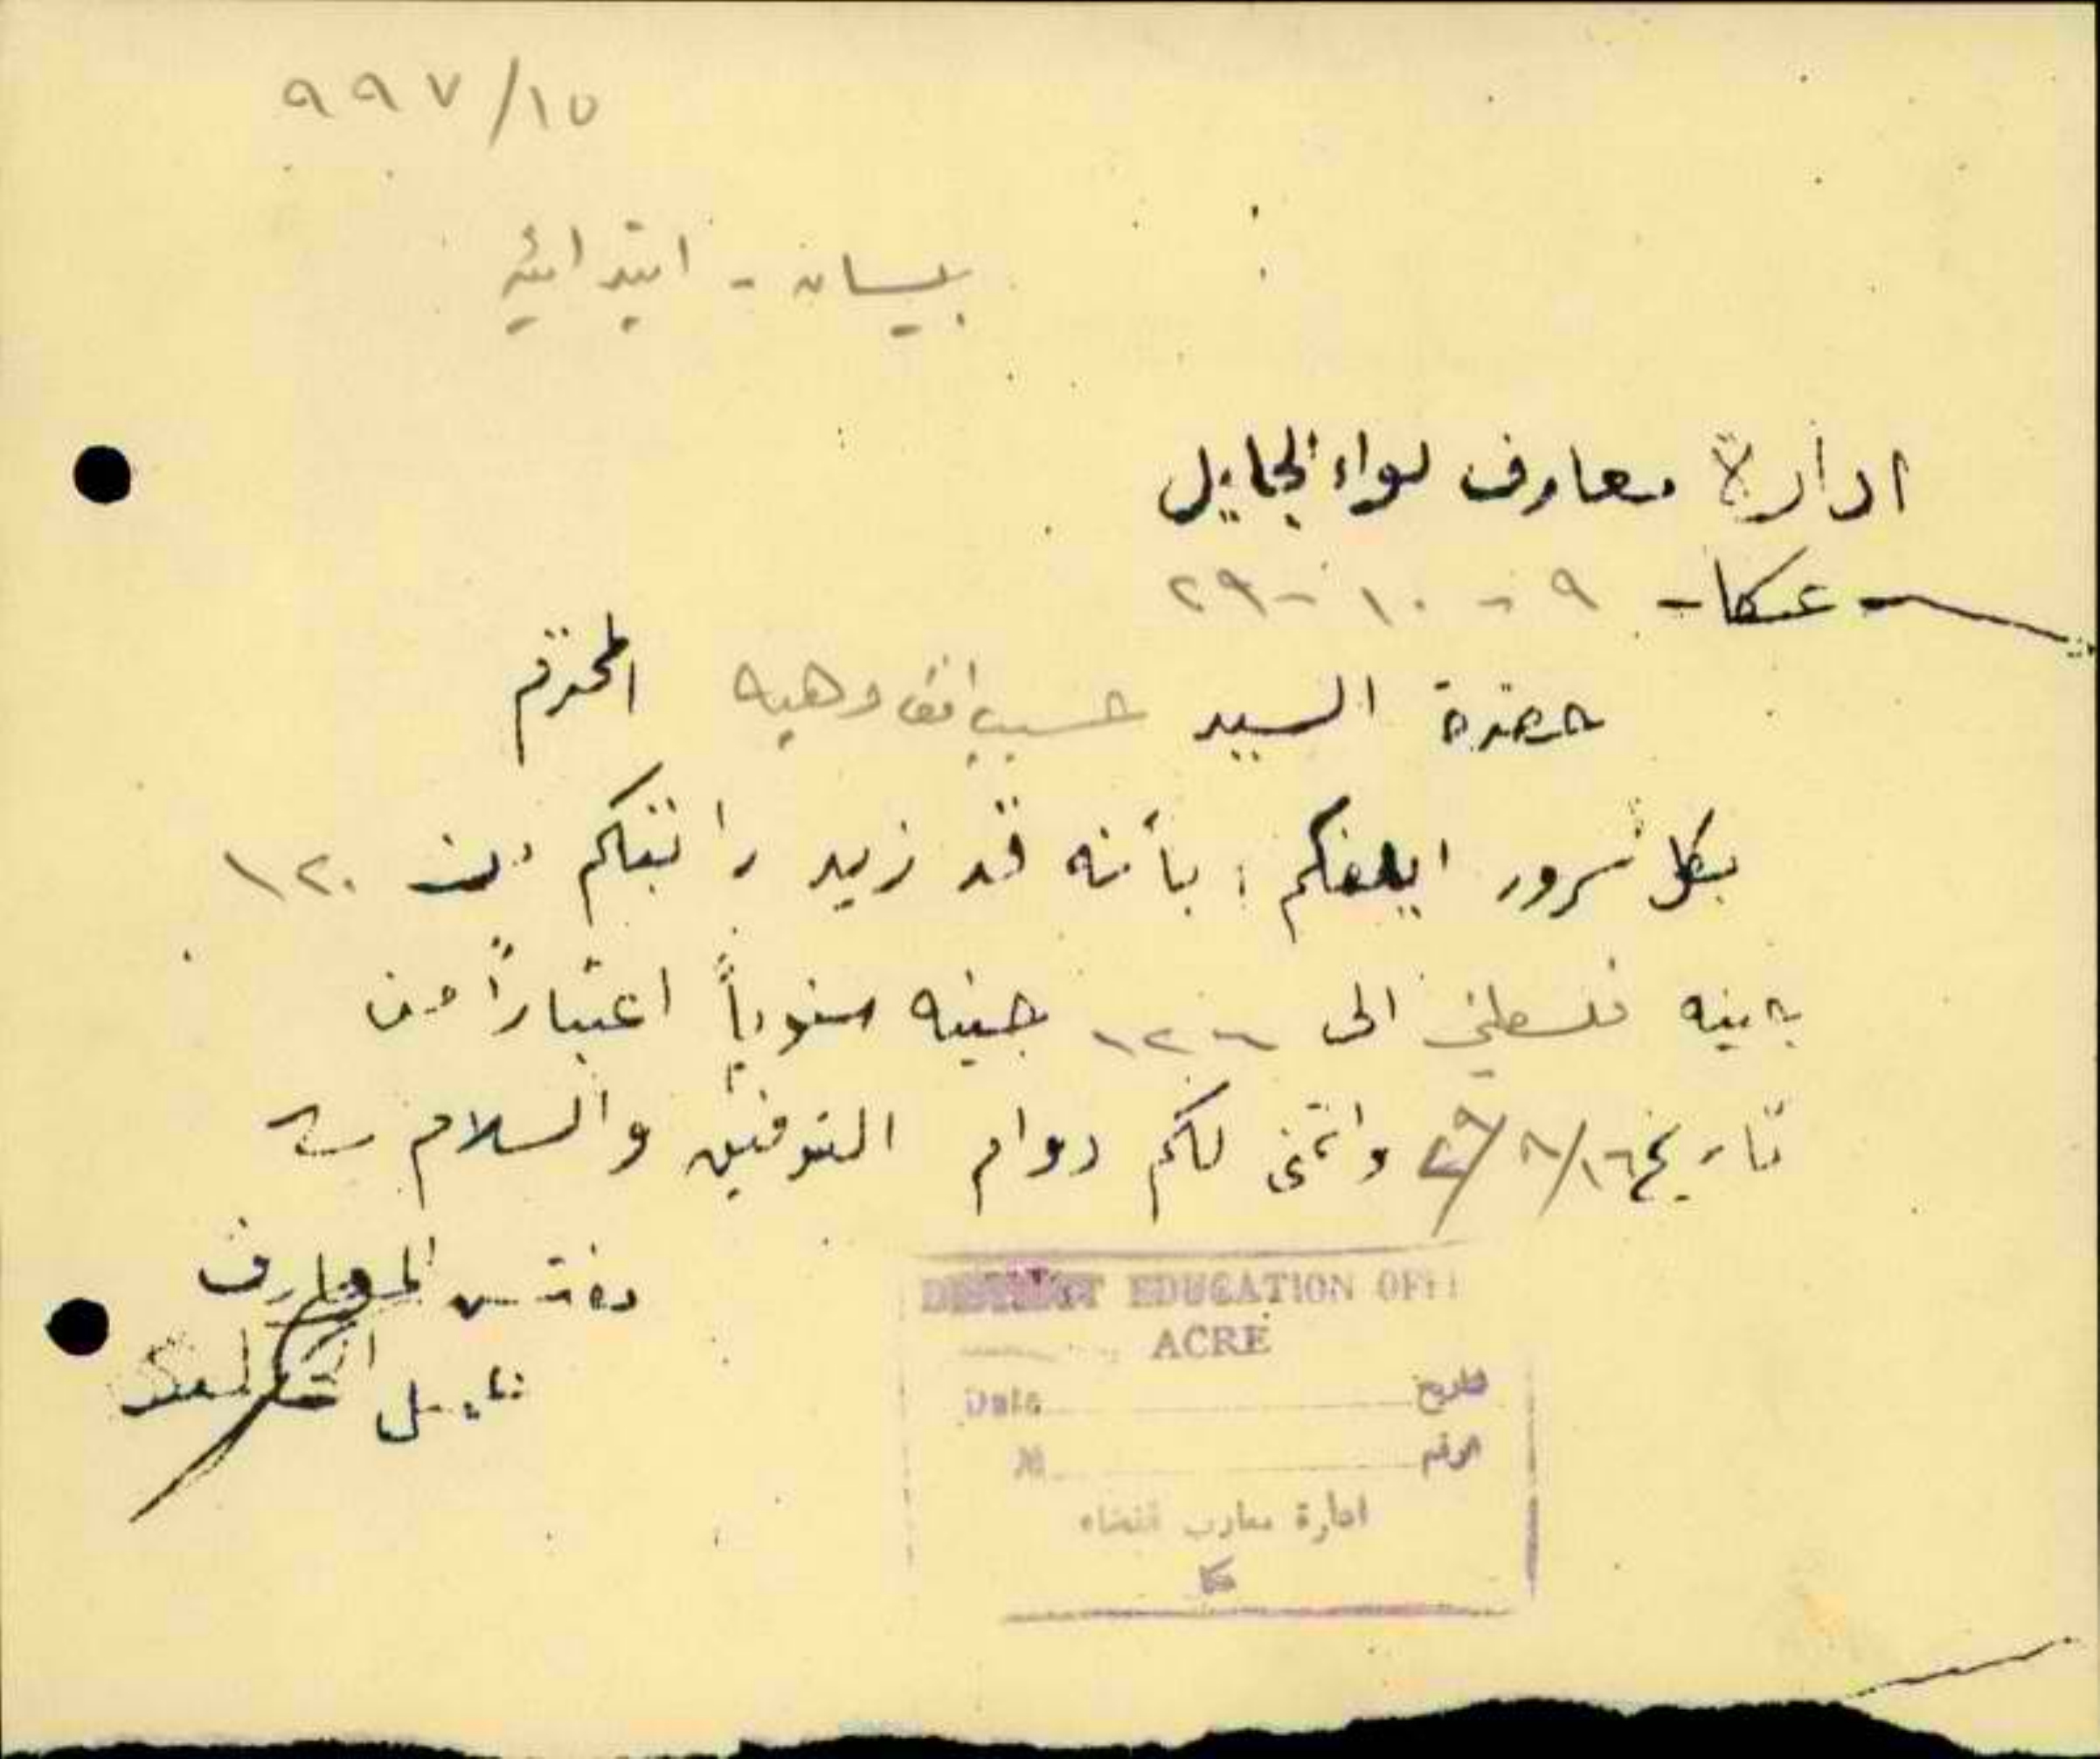 ٩٩٧/١٥
بيسان - ابتدائيه
ادارة معارف لواء الجليل
عكا - ٩ - ١٠ - ٢٩
حضرة السيد حسيب افندي وهبه المحترم
بكل سرور ابلغكم بأنه قد زيد راتبكم من ١٢٠
جنيه فلسطيني الى ١٢٦ جنيه سنوياً اعتباراً من
تاريخ ١٦/٨/٢٩ واتمنى لكم دوام التوفيق والسلام
مفتش المعارف
DISTRICT EDUCATION OFFI
ACRE
Date التاريخ
№ الرقم
ادارة معارف قضاء
عكا